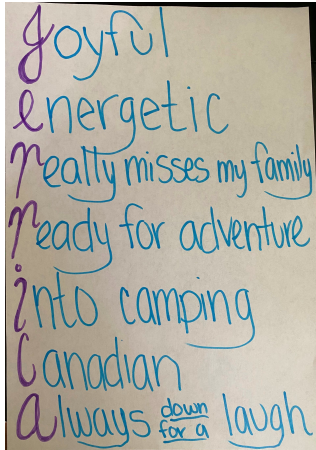 Joyful
energetic
really misses my family
ready for adventure
into camping
Canadian
always down for a laugh